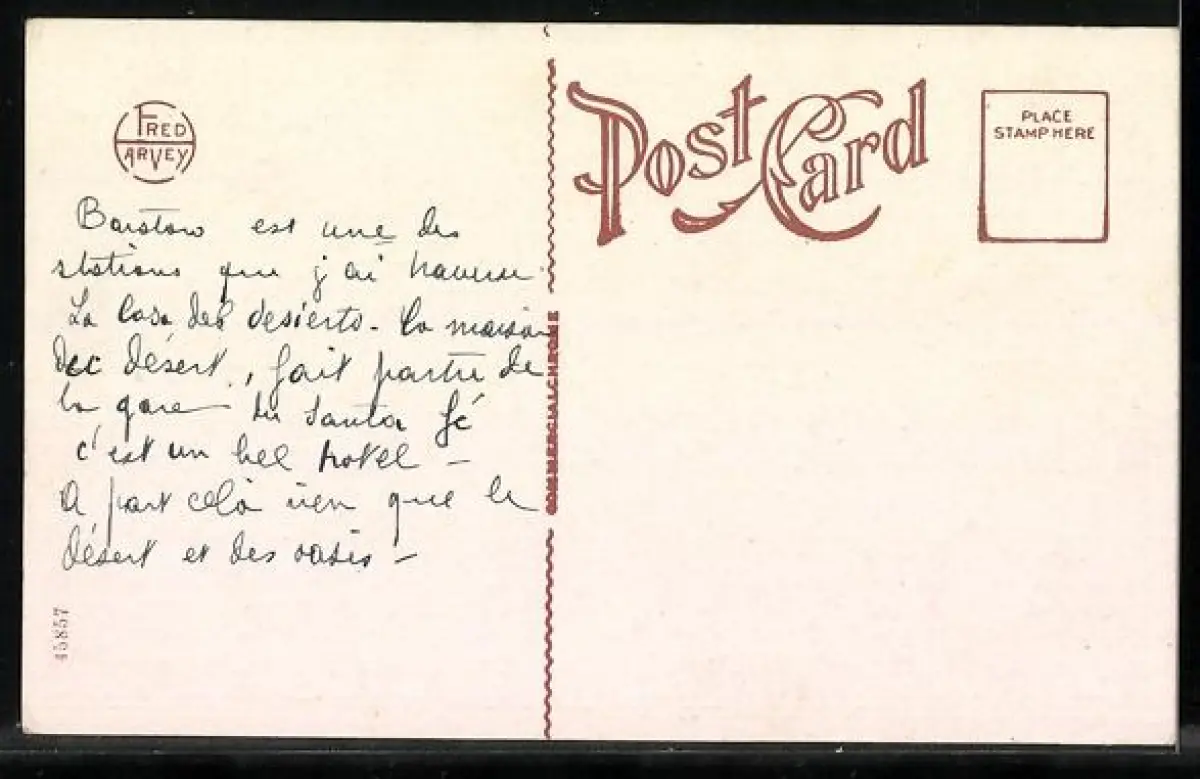 FRED
HARVEY
Barstow est une des
stations que j'ai traverse
La Casa del desierto - la maison
Dec désert, fait partie de
la gare du Santa Fé
c'est un bel hotel -
A part celà rien que le
désert et des oasis -
45857
COMMERCIALCHROME
POST CARD
PLACE
STAMP HERE